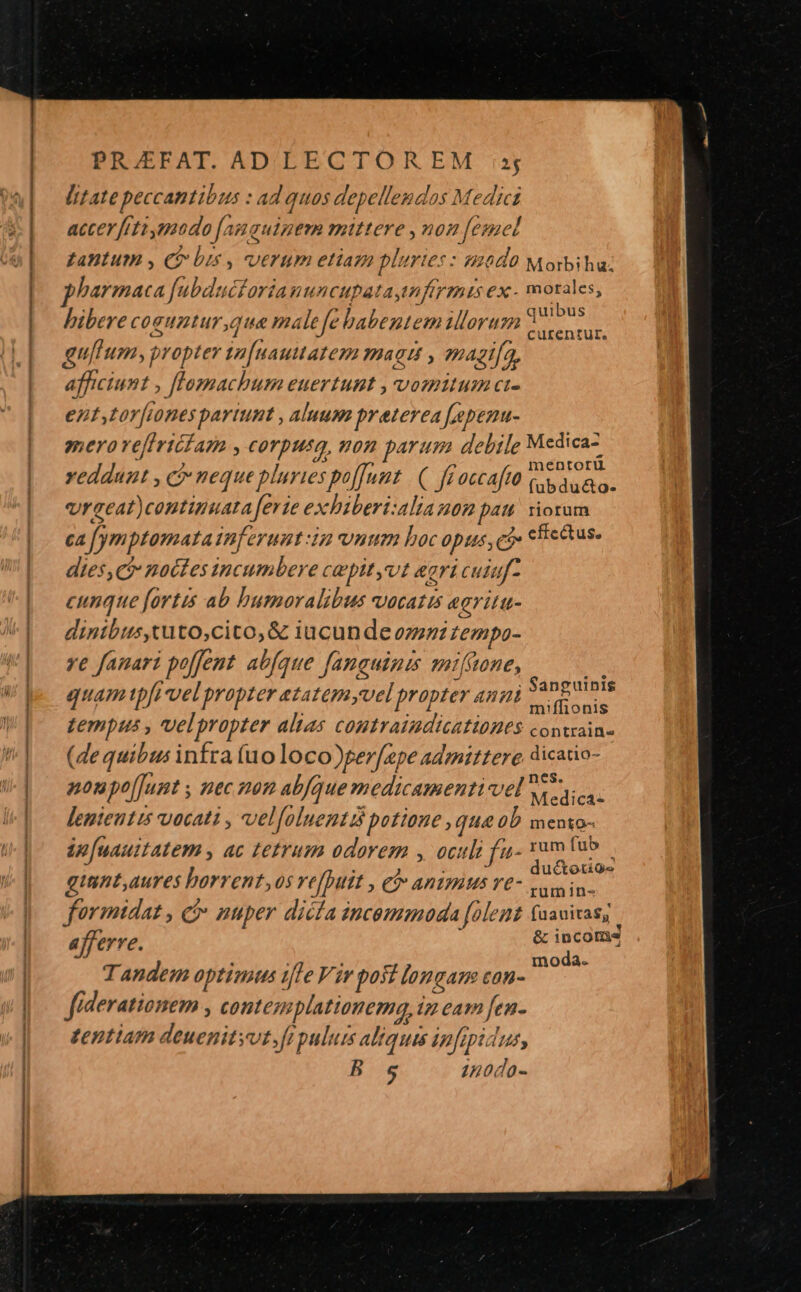 PRÆFAT. AD LECTOREM 25
litate peccantibus : ad quos depellendos Medici
accerſiti,modo ſanguinem mittere , non ſemel
tantum , & bis , verum etiam pluries : modo
pharmaca ſubductoria nuncupata,infirmis ex-
hibere coguntur,quæ male ſe habentem illorum
guſtum, propter inſuauitatem magis , magiſq́,
afficiunt , ſtomachum euertunt , vomitum ci-
ent,torſiones pariunt , aluum præterea ſæpenu-
mero reſtrictam , corpusq́, non parum debile
reddunt , & neque pluries poſſunt ( ſi occaſio
vrgeat)continuata ſerie exhiberi:alia non pau
ca ſymptomata inferunt:in vnum hoc opus, &
dies,& noctes incumbere cœpit,vt ægri cuiuſ-
cunque fortis ab humoralibus vocatis ægritu-
dinibus,tuto,cito,& iucunde omni tempo-
re ſanari poſſent abſque ſanguinis miſsione,
quam ipſi vel propter ætatem,vel propter anni
tempus , vel propter alias contraindicationes
(de quibus infra ſuo loco)perſæpe admittere
non poſſunt ; nec non abſque medicamenti vel
lenientis vocati , vel ſoluentis potione ,quæ ob
inſuauitatem , ac tetrum odorem , oculi fu-
giunt,aures horrent,os reſpuit , & animus re-
formidat , & nuper dicta incommoda ſolent
afferre.
Tandem optimus iſte Vir poſt longam con-
ſiderationem , contemplationemq́, in eam ſen-
tentiam deuenit;vt,ſi puluis aliquis inſipidus,
B 5 inodo-
Morbi hu-
morales,
quibus
curentur.
Medica-
mentorũ
ſubducto-
riorum
effectus.
Sanguinis
miſſionis
contrain-
dicatio-
nes.
Medica-
mento-
rum ſub
ductorio-
rum in-
ſuauitas,
& incom-
moda.